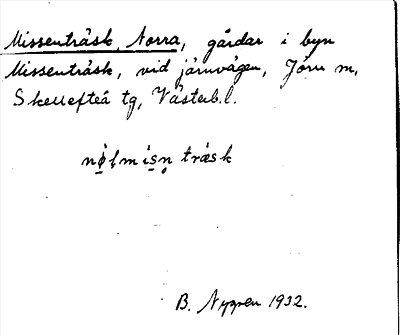 Missenträsk, Norra, gårdar i byn
Missenträsk, vid järnvägen, Jörn m,
Skellefteå tg, Västerb.l.
nø̣lmi̇́sn̥ træsk
B. Nygren 1932.